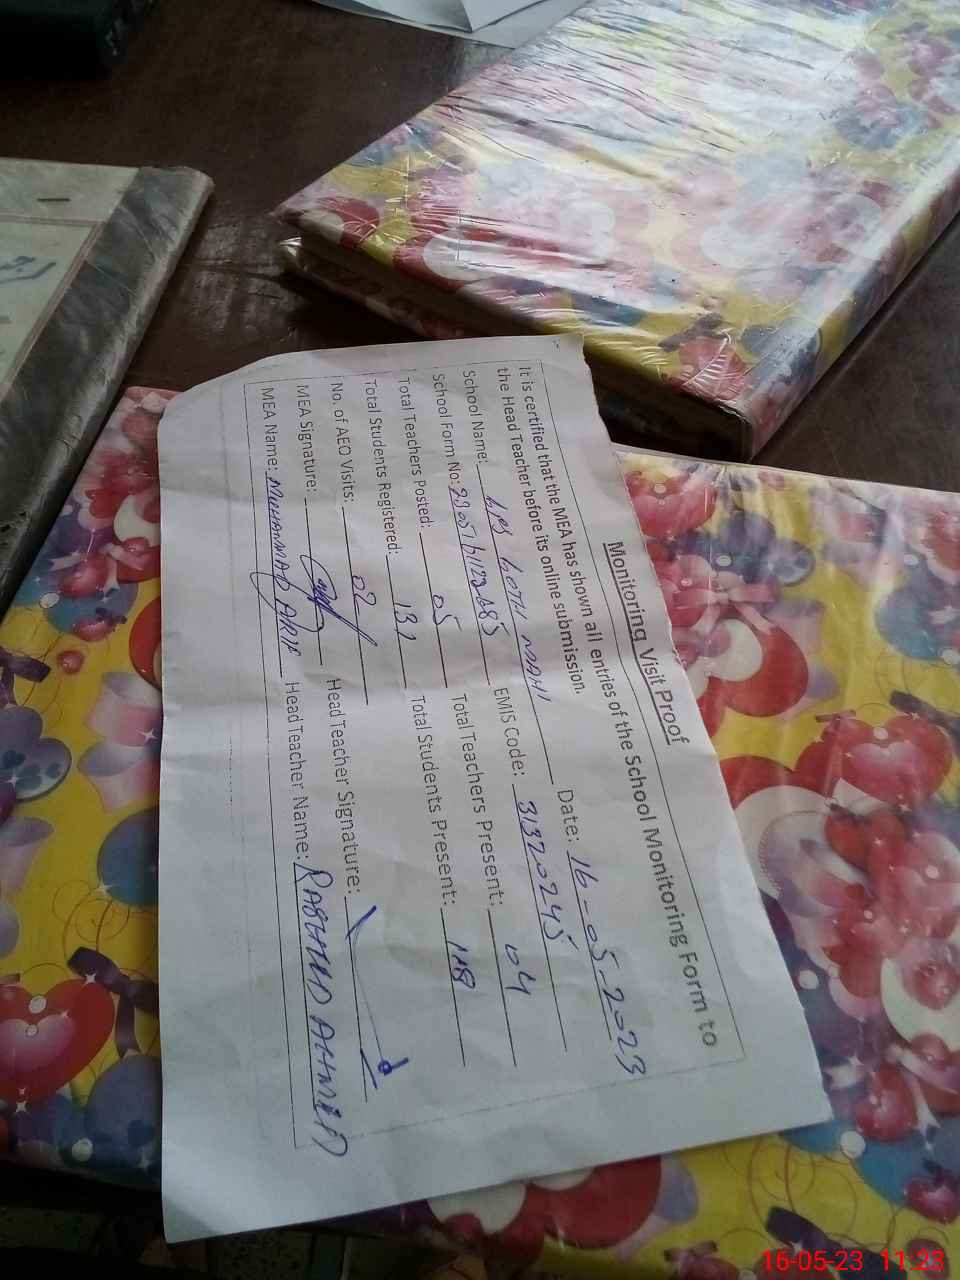 Monitoring Visit Proof
It is certified that the MEA has shown all entries of the School Monitoring Form to
the Head Teacher before its online submission.
School Name: GPS GOTH MAHI Date: 16-05-2023
School Form No: EMIS Code: 31320245
Total Teachers Posted: 05 Total Teachers Present: 04
Total Students Registered: 132 Total Students Present: 118
No. of AEO Visits: 02
MEA Signature: Head Teacher Signature:
MEA Name: MUHAMMAD ARIF Head Teacher Name: RASHID AHMED
16-05-23 11:23